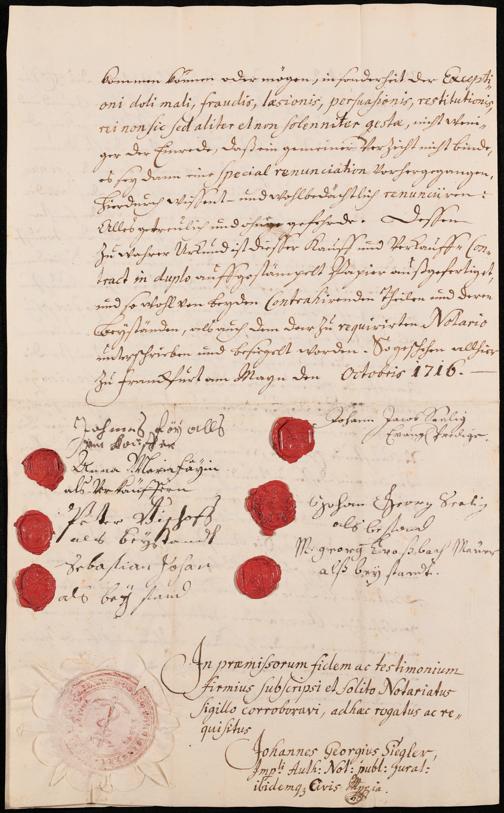 kommen können oder mögen, in sonderheit der Excepti-
oni doli mali, fraudis, læsionis, persuasionis, restitutionis,
rei non sic sed aliter et non solenniter gestæ, nicht weni-
ger der Einrede, daß ein gemeiner Verzicht nicht binde,
es sey dann eine special renunciation vorhergegangen,
hierdurch wissent- und wohlbedächtlich renunciiren:
Alles getreulich und ohne gefehrde. Dessen
zu wahrer Urkund ist dießer Kauff- und Verkauff-Con-
tract in duplo auff gestämpelt Papier außgefertiget,
und so wohl von beyden Contrahirenden Theilen und deren
beyständen, als auch dem darzu requirirten Notario
unterschrieben und besiegelt worden. So geschehen allhier
zu Franckfurt am Mayn den Octobris 1716.
Johannes als
Johann Jacob Seelig
Anna Maria
als Verkäufferin
Peter Bischoff
als beystandt
Johan Georg Seelig
als bestand
Sebastian Johan
als bey stand
M. georg Maurer
alß bey standt.
In præmissorum fidem ac testimonium
firmius subscripsi et solito Notariatus
sigillo corroboravi, ad hæc rogatus ac re-
quisitus
Johannes Georgius Siegler,
Imp: Auth: Not: publ: jurat:
ibidemq; Civis